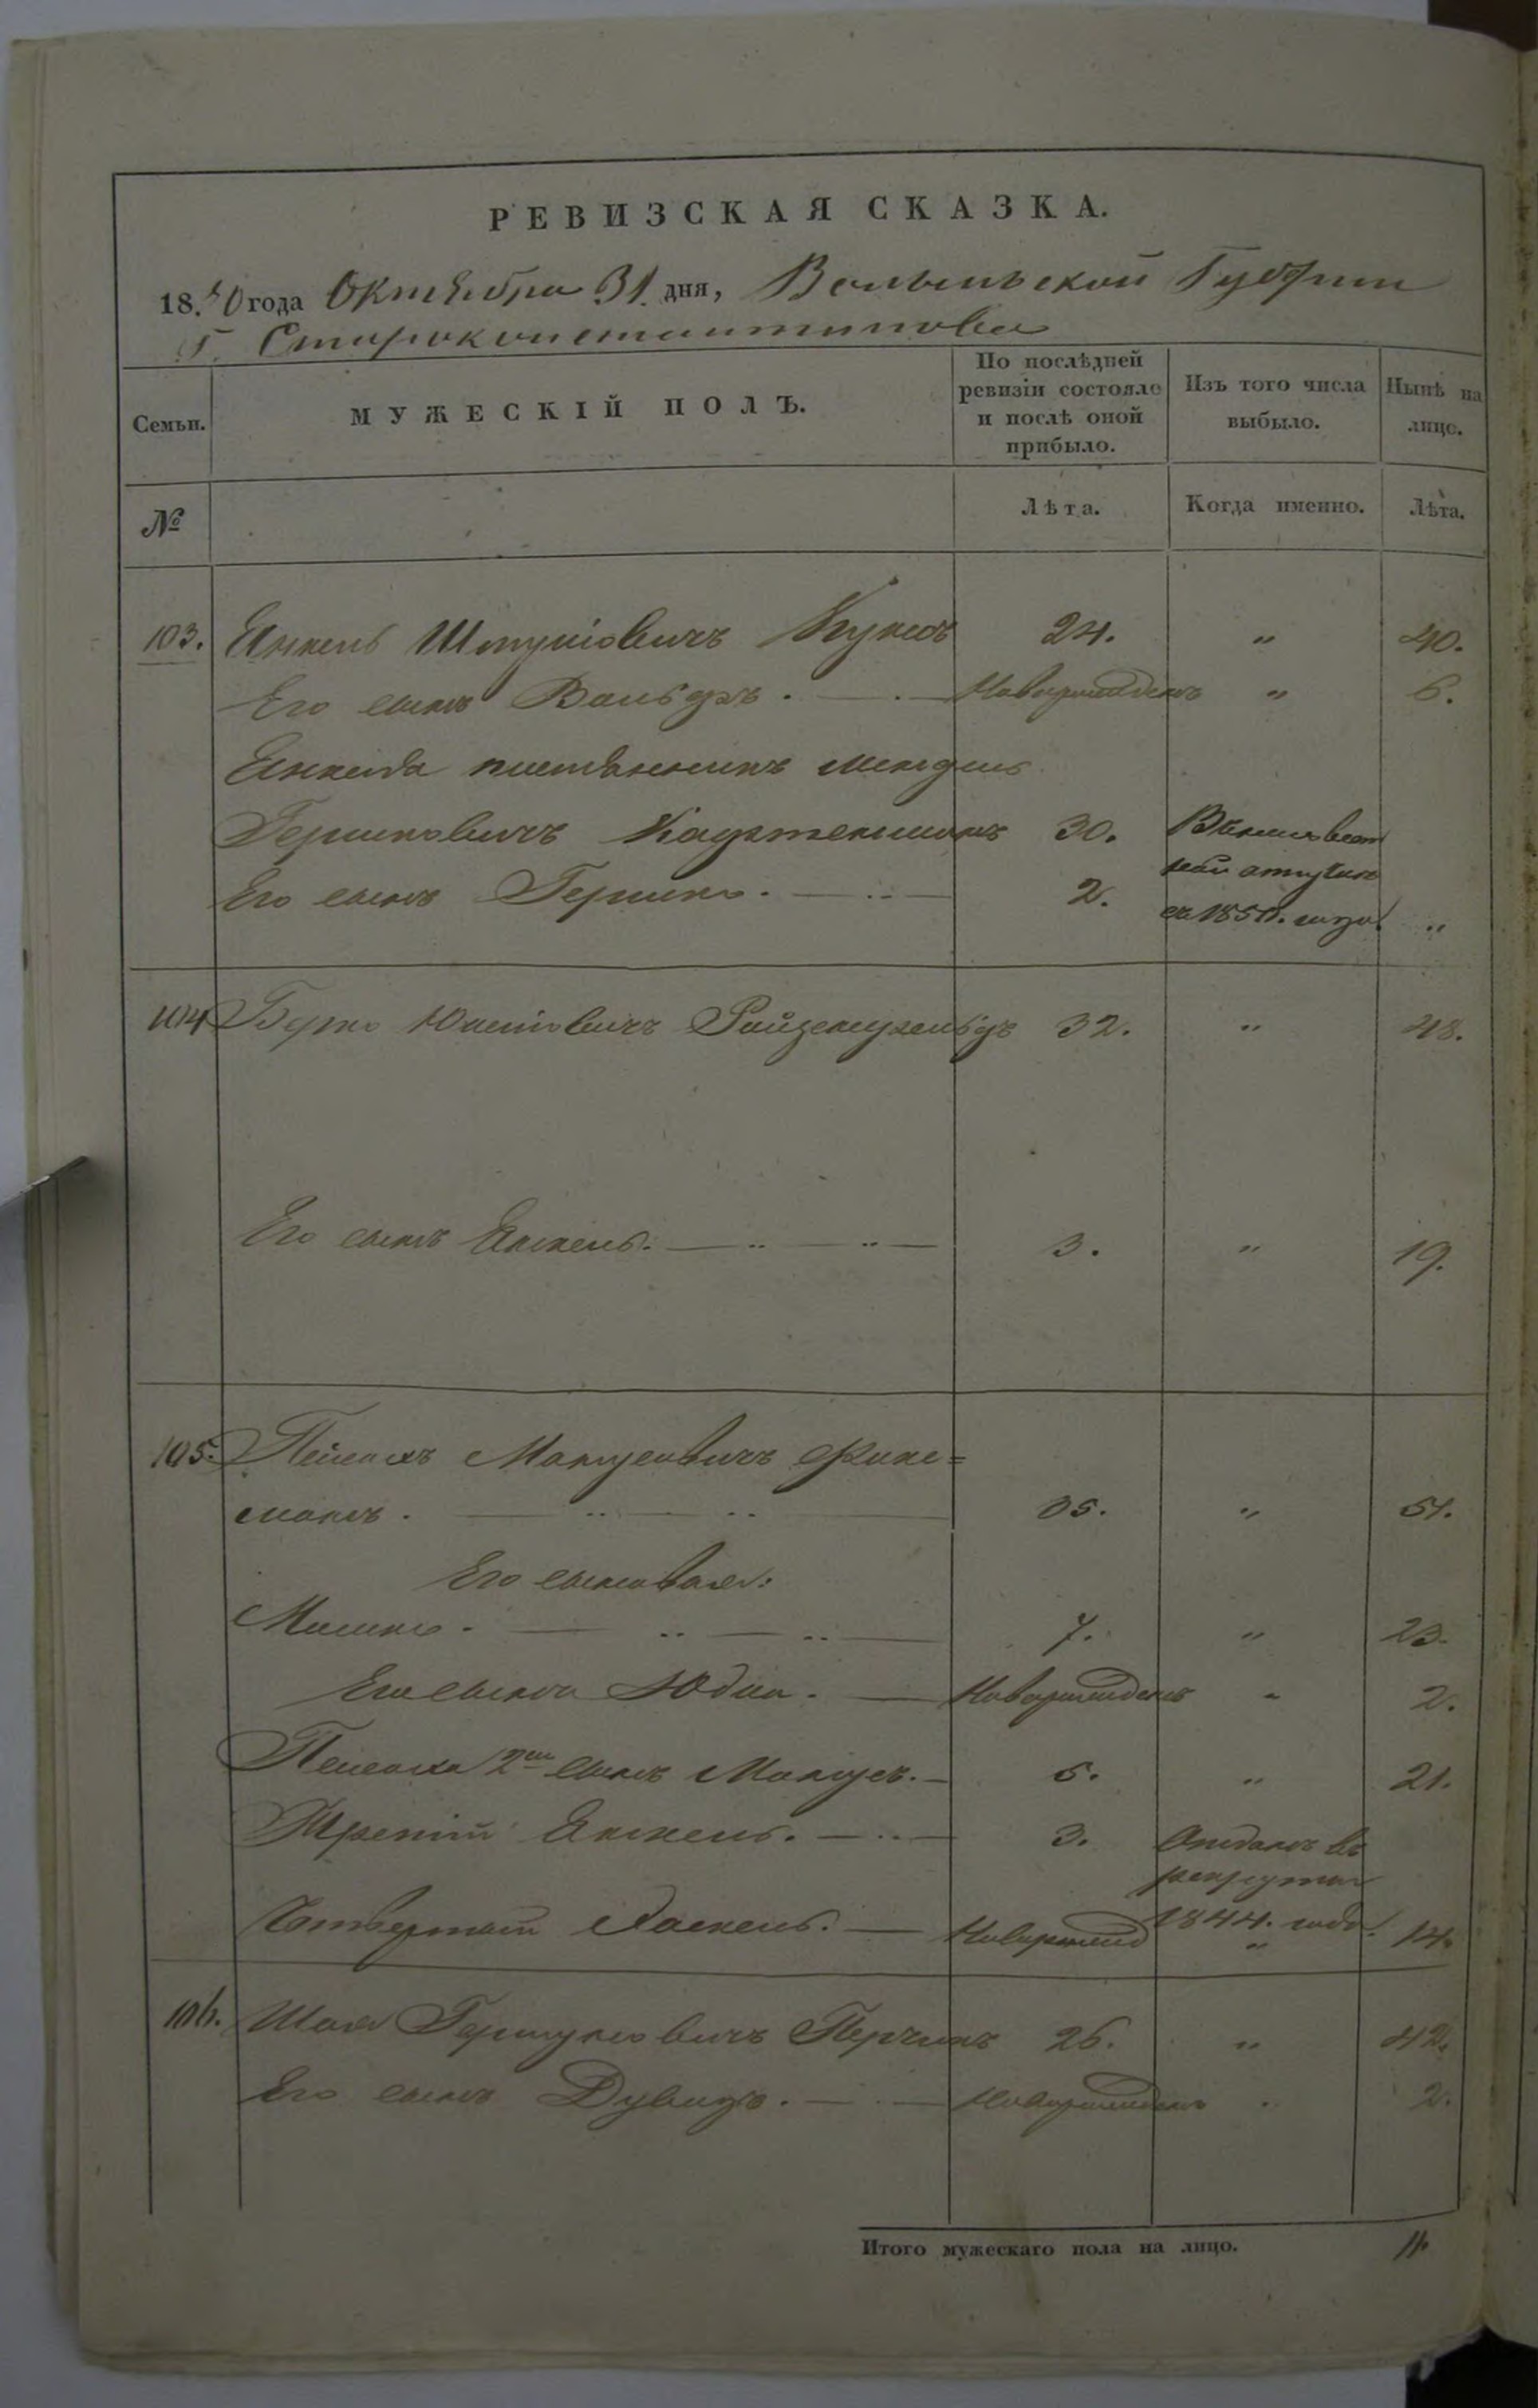 РЕВИЗСКАЯ СКАЗКА.
18.50 года Октября 31 дня, Волынской Губернии
Г. Староконстантинова
Семьи. МУЖЕСКІЙ ПОЛЪ. По послѣдней ревизіи состояло и послѣ оной прибыло. Изъ того числа выбыло. Нынѣ на лицо.
№ Лѣта. Когда именно. Лѣта.
103. Янкель Шмулiовичъ 24. " 40.
Его сынъ Вольфъ. Новорожденъ " 6.
Янкеля племянникъ Мендель
Гершковичъ 30.
Его сынъ Гершко. 2. съ 1850. года "
104 Берко Юкелiовичъ 32. " 48.
Его сынъ Янкель. 3. " 19.
105. Пейсахъ Манусовичъ Фикс=
манъ. 35. " 51.
Его сыновья:
Мошко. 7. " 23.
Его сынъ Юдка. Новорожденъ " 2.
Пейсаха 2й сынъ Манусъ. 5. " 21.
Третій Янкель. 3. Отданъ въ
рекруты
1844. года
Четвертый Хаскель. Новорожд " 14.
106. Шая Гершуновичъ Перчикъ 26. " 42.
Его сынъ Дувидъ. Новорожденъ " 2.
Итого мужескаго пола на лицо. 11.